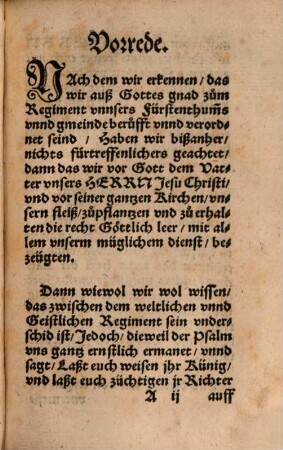 Vorrede.
NAch dem wir erkennen / das
wir auß Gottes gnad zům
Regiment vnnsers Fürstenthumͤs
vnnd gmeinde berůfft vnnd verord⸗
net seind / Haben wir bißanher /
nichts fürtreffenlichers geachtet /
dann das wir vor Gott dem Vat⸗
ter vnsers HERRN Jesu Christi /
vnd vor seiner gantzen Kirchen / vn⸗
sern fleiß / zůpflantzen vnd zů erhal⸗
ten die recht Göttlich leer / mit al⸗
lem vnserm müglichem dienst / be⸗
zeügten.
Dann wiewol wir wol wissen /
das zwischen dem weltlichen vnnd
Geistlichen Regiment sein vnder⸗
schid ist / Jedoch / dieweil der Psalm
vns gantz ernstlich ermanet / vnnd
sagt / Laßt euch weisen jhr Künig /
vnd laßt euch züchtigen jr Richter
A ij auff